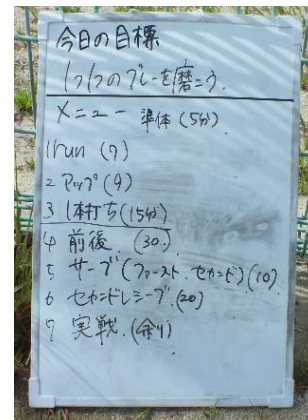 今日の目標
1つ1つのプレーを磨こう.
メニュー 準体 (5分)
1 run (7)
2 アップ (9)
3 1本打ち (15分)
4 前後. (30.)
5 サーブ (ファースト. セカンド) (10)
6 セカンドレシーブ. (20)
7 実戦. (余り)